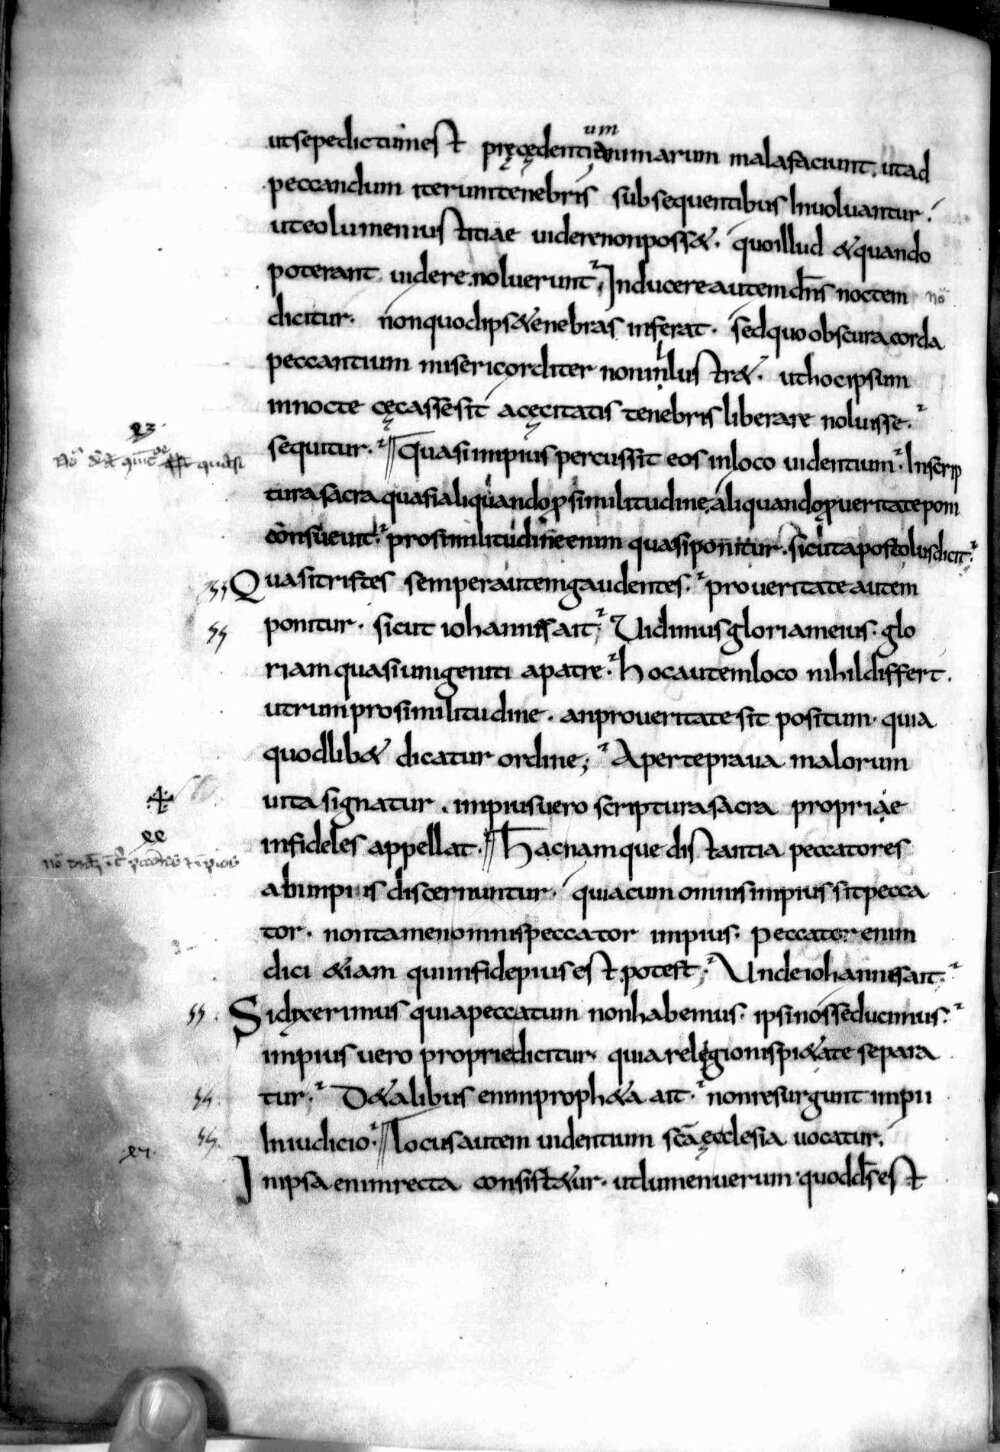 utsepe dictum est pręcędentium animarum mala faciunt, ut ad
peccandum iterum tenebris subsequentibus involvantur.
ut eo lumen iustitiae videre non poss&. quo illud & quando
poterant videre noluerunt; Inducere autem dn̄s noctem nō
dicitur. non quod ips& enebras inferat. sed quo obscura corda
peccantium misericorditer non inlustr&. ut hoc ipsum
in nocte cęcasse sit a cęcitatis tenebris liberare noluisse.
sequitur. Quasi impius percussit eos in loco videntium. In scrip
tura sacra quasi aliquando ꝓ similitudine, aliquando ꝓ veritate poni
consuevit. pro similitudine enim quasi ponitur. sicut apostolus dicit.
Quasi tristes semper autem gaudentes. pro veritate autem
ponitur. sicut iohannis ait; Vidimus gloriam eius. glo
riam quasi unigeniti a patre. hoc autem loco nihil differt.
utrum pro similitudine. an pro veritate sit positum. quia
quodlib& dicatur ordine; Aperte prava malorum
vita signatur. impius vero scriptura sacra propriae
infideles appellat. Hac namque distantia peccatores
ab impiis discernuntur. quia cum omnis impius sit pecca
tor. non tamen omnis peccator impius. Peccator enim
dici &iam qui in fide pius est potest; Unde iohannis ait;
Si dixerimus quia peccatum non habemus. ipsi nos seducimus.
impius vero proprie dicitur. quia relegionis pi&ate separa
tur. D& alibus enim proph&a ait. non resurgunt impii
In iudicio. Locus autem videntium sc̄a ęcclesia vocatur.
In ipsa enim recta consist&ur. ut lumen verum quod d̄s est